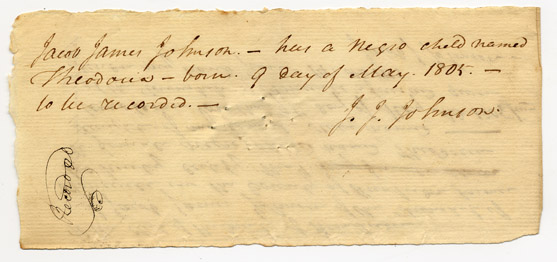 Jacob James Johnson. – has a Negro child named
Theodocia – born. 9 day of May. 1805. –
to be recorded. –
J. J. Johnson.
Recorded